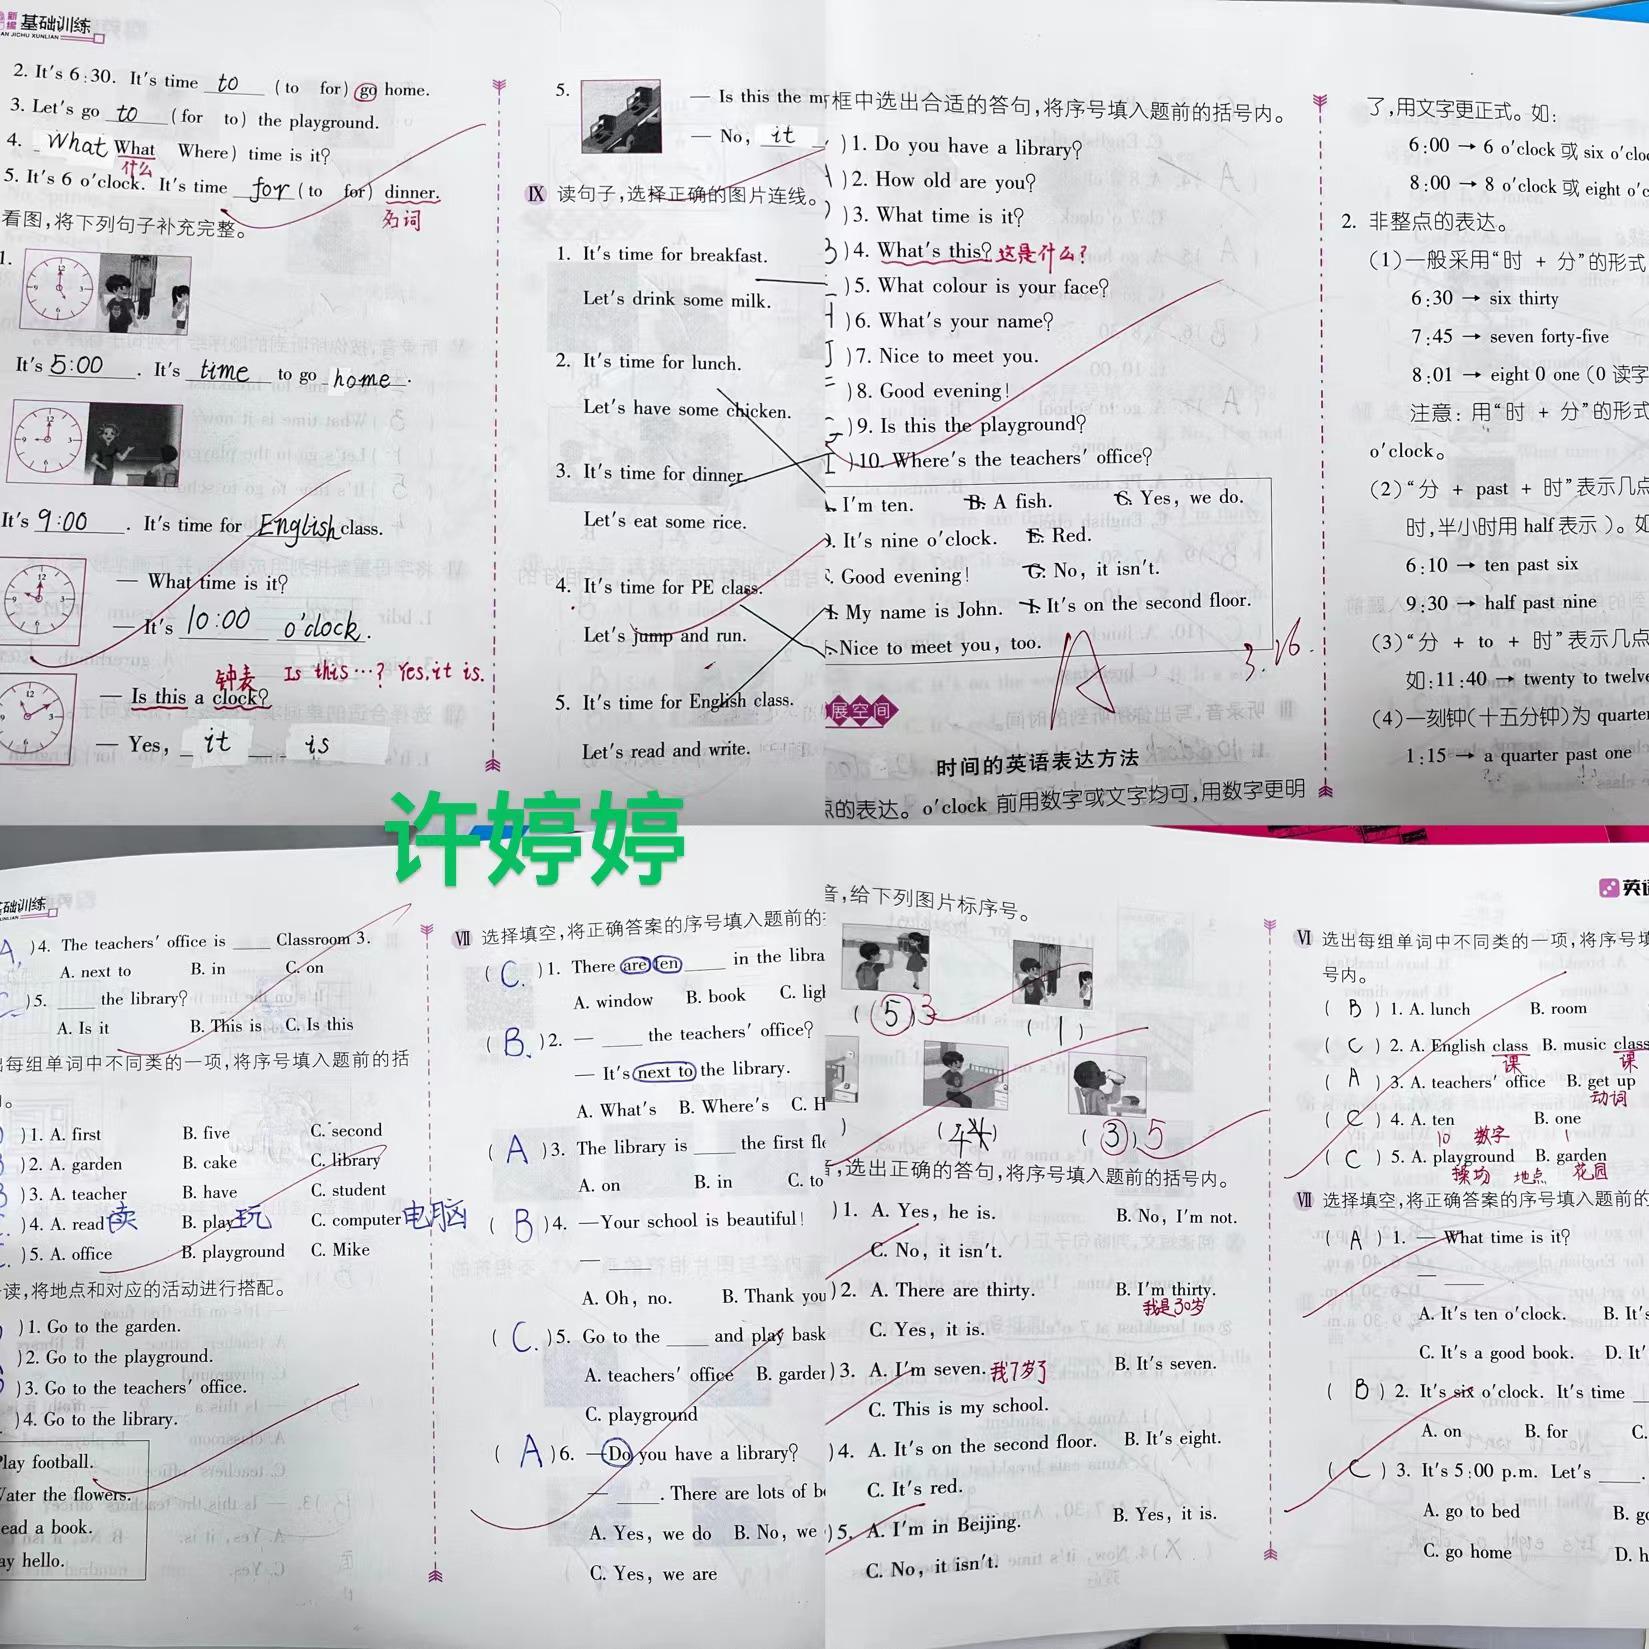 新编 基础训练
2. It's 6:30. It's time to (to for) go home.
3. Let's go to (for to) the playground.
4. What What Where) time is it?
什么
5. It's 6 o'clock. It's time for (to for) dinner.
名词
看图,将下列句子补充完整。
1.
It's 5:00. It's time to go home.
It's 9:00. It's time for English class.
— What time is it?
— It's 10:00 o'clock.
钟表 Is this…? Yes, it is.
— Is this a clock?
— Yes, it is
5. — Is this the
— No, it
Ⅸ 读句子,选择正确的图片连线。
1. It's time for breakfast.
Let's drink some milk.
2. It's time for lunch.
Let's have some chicken.
3. It's time for dinner.
Let's eat some rice.
4. It's time for PE class.
Let's jump and run.
5. It's time for English class.
Let's read and write.
框中选出合适的答句,将序号填入题前的括号内。
)1. Do you have a library?
)2. How old are you?
)3. What time is it?
)4. What's this? 这是什么?
)5. What colour is your face?
)6. What's your name?
)7. Nice to meet you.
)8. Good evening!
)9. Is this the playground?
)10. Where's the teachers' office?
I'm ten. B. A fish. C. Yes, we do.
It's nine o'clock. E. Red.
Good evening! G. No, it isn't.
My name is John. I. It's on the second floor.
Nice to meet you, too.
A 3.16.
展空间
时间的英语表达方法
点的表达。o'clock 前用数字或文字均可,用数字更明
了,用文字更正式。如:
6:00 → 6 o'clock 或 six o'clo
8:00 → 8 o'clock 或 eight o'c
2. 非整点的表达。
(1)一般采用“时 + 分”的形式
6:30 → six thirty
7:45 → seven forty-five
8:01 → eight 0 one (0 读字
注意: 用“时 + 分”的形式
o'clock。
(2)“分 + past + 时”表示几点
时,半小时用 half 表示)。如
6:10 → ten past six
9:30 → half past nine
(3)“分 + to + 时”表示几点
如:11:40 → twenty to twelve
(4)一刻钟(十五分钟)为 quarter
1:15 → a quarter past one
许婷婷
基础训练
A. )4. The teachers' office is ____ Classroom 3.
A. next to B. in C. on
)5. ____ the library?
A. Is it B. This is C. Is this
出每组单词中不同类的一项,将序号填入题前的括
)1. A. first B. five C. second
)2. A. garden B. cake C. library
)3. A. teacher B. have C. student
)4. A. read 读 B. play 玩 C. computer 电脑
)5. A. office B. playground C. Mike
读,将地点和对应的活动进行搭配。
)1. Go to the garden.
)2. Go to the playground.
)3. Go to the teachers' office.
)4. Go to the library.
Play football.
Water the flowers.
ead a book.
ay hello.
Ⅶ 选择填空,将正确答案的序号填入题前的
( C. )1. There are ten ____ in the libra
A. window B. book C. ligh
( B. )2. — ____ the teachers' office?
— It's next to the library.
A. What's B. Where's C. H
( A )3. The library is ____ the first flo
A. on B. in C. to
( B )4. —Your school is beautiful!
— ____
A. Oh, no. B. Thank you
( C. )5. Go to the ____ and play bask
A. teachers' office B. garden
C. playground
( A )6. —Do you have a library?
— ____. There are lots of bo
A. Yes, we do B. No, we
C. Yes, we are
音,给下列图片标序号。
(5)3 (1)
) (4) (3)5
音,选出正确的答句,将序号填入题前的括号内。
)1. A. Yes, he is. B. No, I'm not.
C. No, it isn't.
)2. A. There are thirty. B. I'm thirty.
我是30岁
C. Yes, it is.
)3. A. I'm seven. 我7岁了 B. It's seven.
C. This is my school.
)4. A. It's on the second floor. B. It's eight.
C. It's red.
)5. A. I'm in Beijing. B. Yes, it is.
C. No, it isn't.
英语
Ⅵ 选出每组单词中不同类的一项,将序号填
号内。
( B ) 1. A. lunch B. room
( C ) 2. A. English class B. music class
课 课
( A ) 3. A. teachers' office B. get up
动词
( C ) 4. A. ten B. one
10 数字 1
( C ) 5. A. playground B. garden
操场 地点 花园
Ⅶ 选择填空,将正确答案的序号填入题前的
( A ) 1. — What time is it?
— ____
A. It's ten o'clock. B. It's
C. It's a good book. D. It'
( B ) 2. It's six o'clock. It's time
A. on B. for C.
( C ) 3. It's 5:00 p.m. Let's ____.
A. go to bed B. go
C. go home D. h